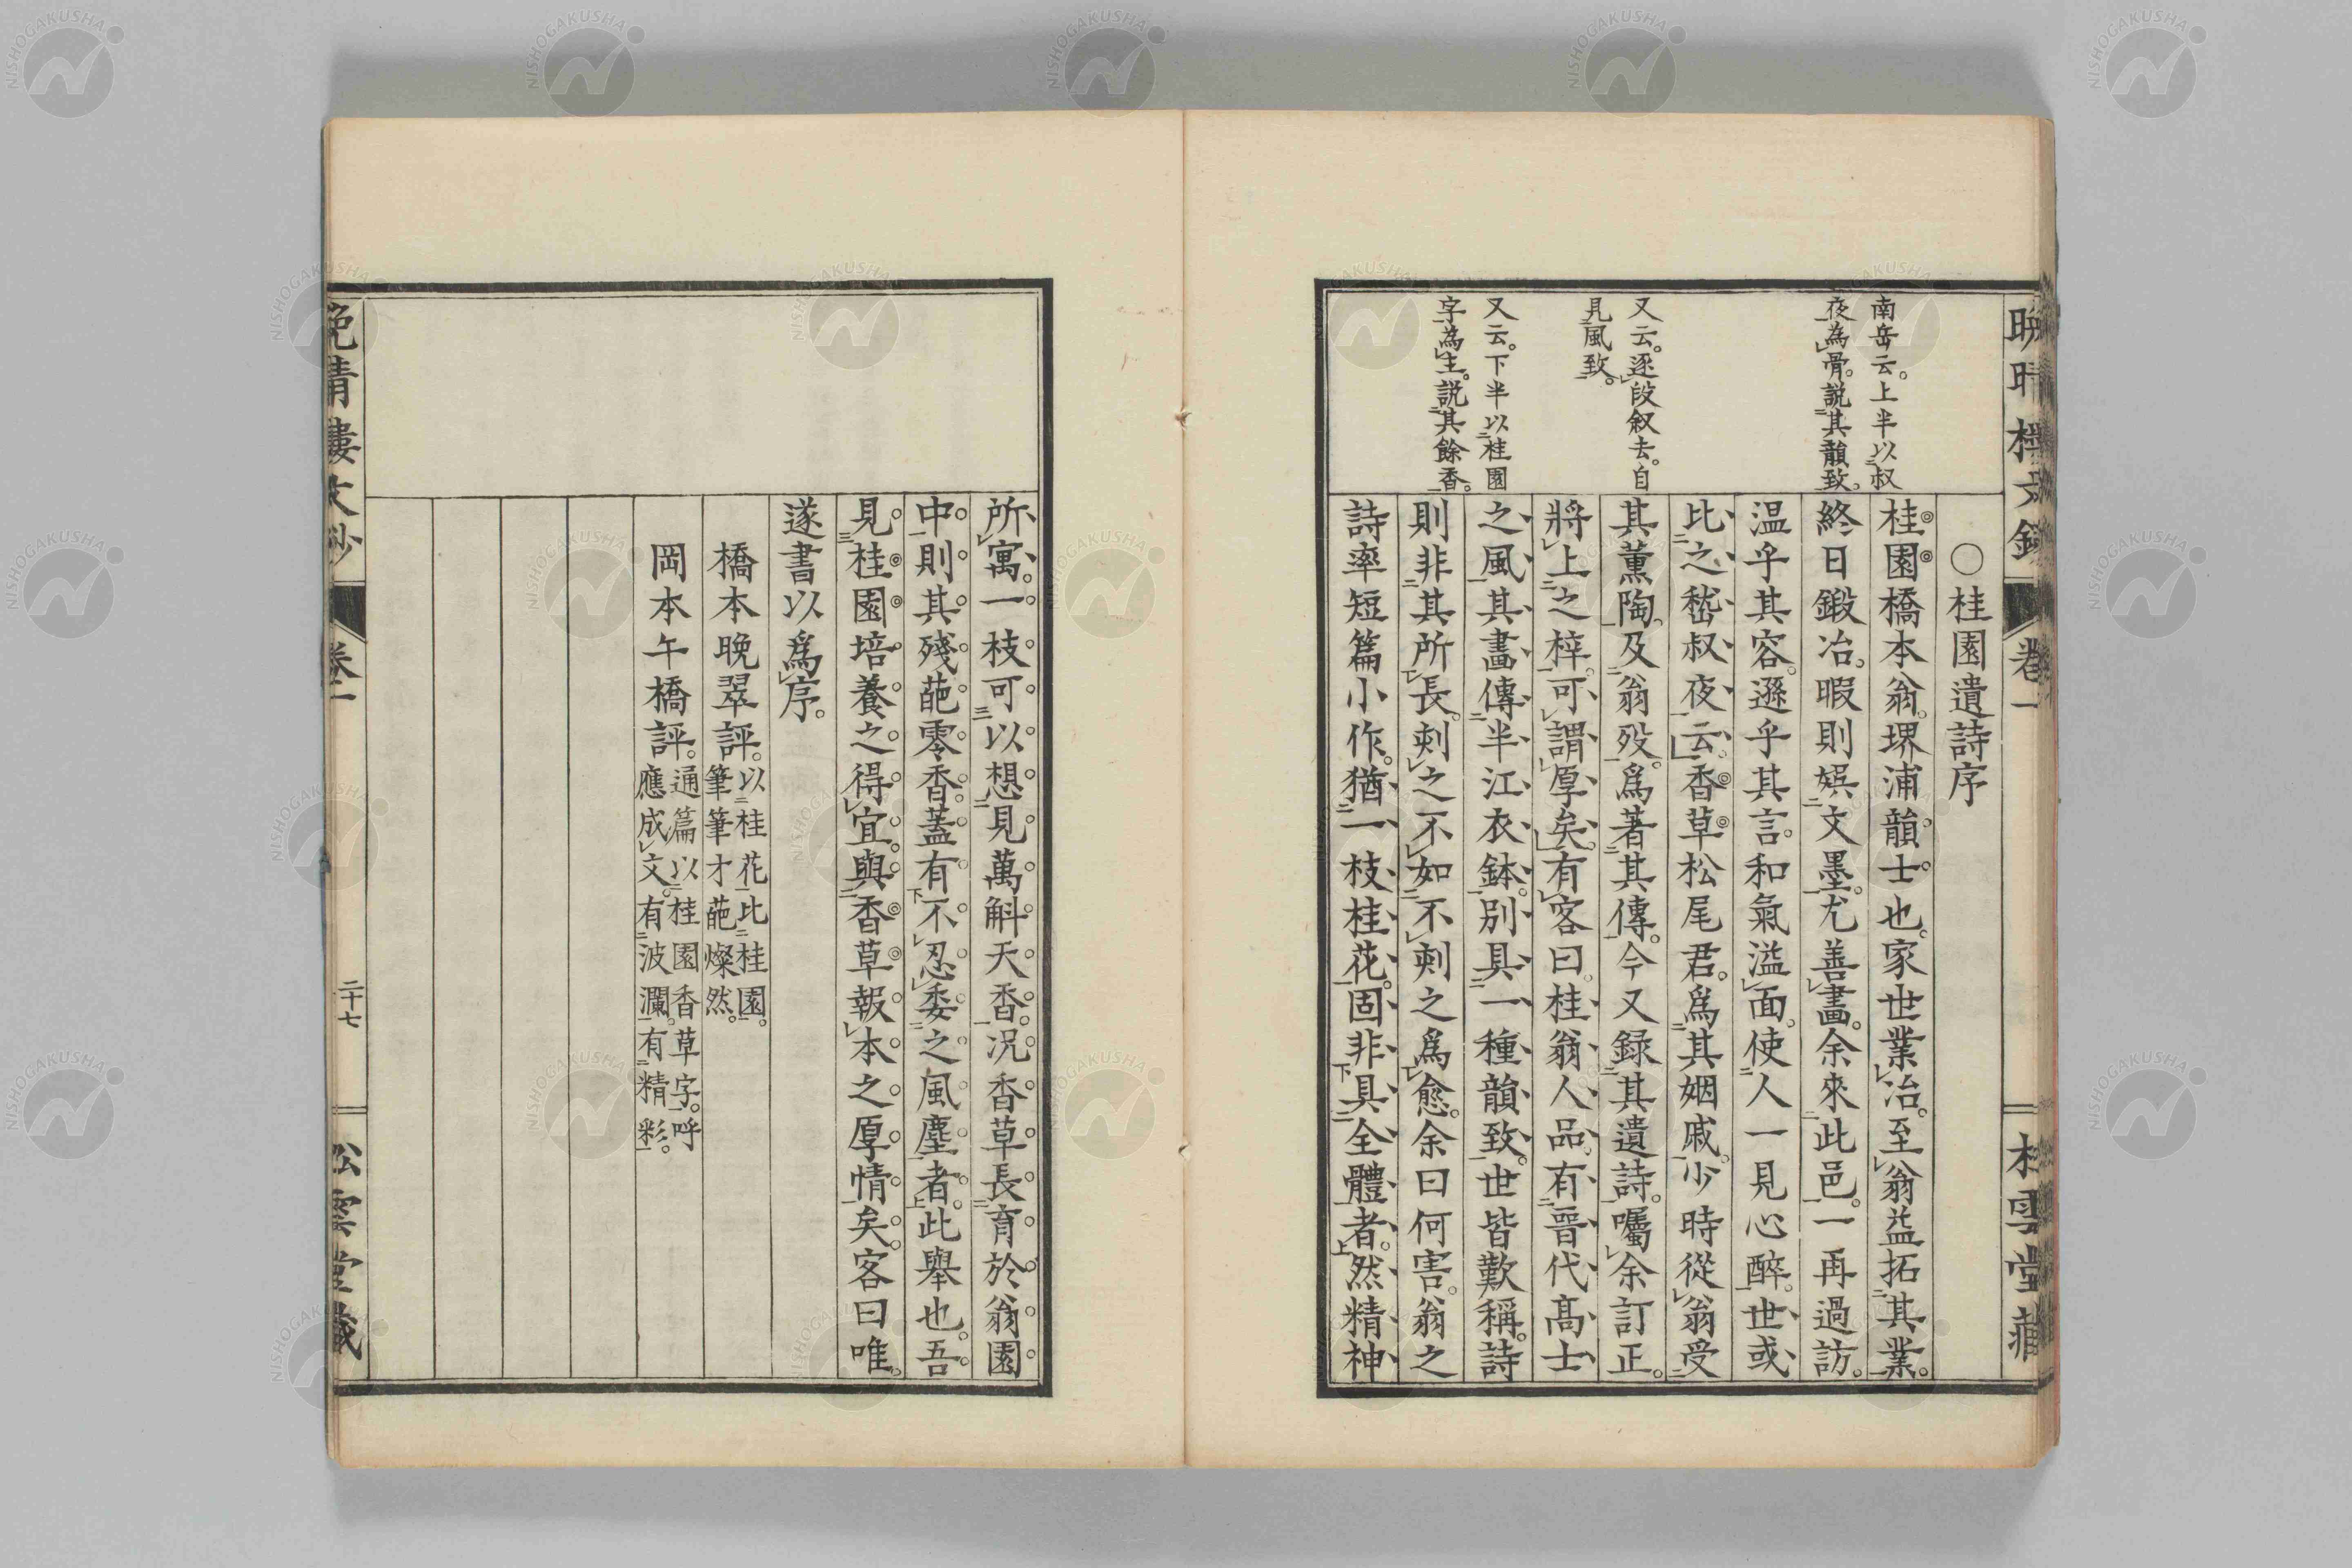 ○桂園遺詩序
桂園橋本翁。堺浦韻士也。家世業冶。至翁益拓其業。
終日鍛冶。暇則娯文墨。尤善畫。余來此邑。一再過訪。
温乎其容。遜乎其言。和氣溢面。使人一見心醉。世或
比之嵇叔夜云。香草松尾君。爲其姻戚。少時從翁受
其薫陶。及翁歿。爲著其傳。今又録其遺詩。囑余訂正。
將上之梓。可謂厚矣。有客曰。桂翁人品。有晉代高士
之風。其畫傳半江衣鉢。別具一種韻致。世皆歎稱。詩
則非其所長。刺之不如不刺之爲愈。余曰何害。翁之
詩率短篇小作。猶一枝桂花。固非具全體者。然精神
南岳云。上半以叔
夜為骨。説其韻致。
又云。逐段叙去。自
見風致。
又云。下半以桂園
字為主。説其餘香。
卷一
所寓。一枝可以想見萬斛天香。况香草長育於翁園
中。則其殘葩零香。蓋有不忍委之風塵者。此舉也。吾
見桂園培養之得宜。與香草報本之厚情矣。客曰唯。
遂書以爲序。
橋本晩翠評。以桂花比桂園。
筆筆才葩燦然。
岡本午橋評。通篇以桂園香草字。呼
應成文。有波瀾。有精彩。
晩晴樓文鈔
卷一
二十七
松雲堂藏